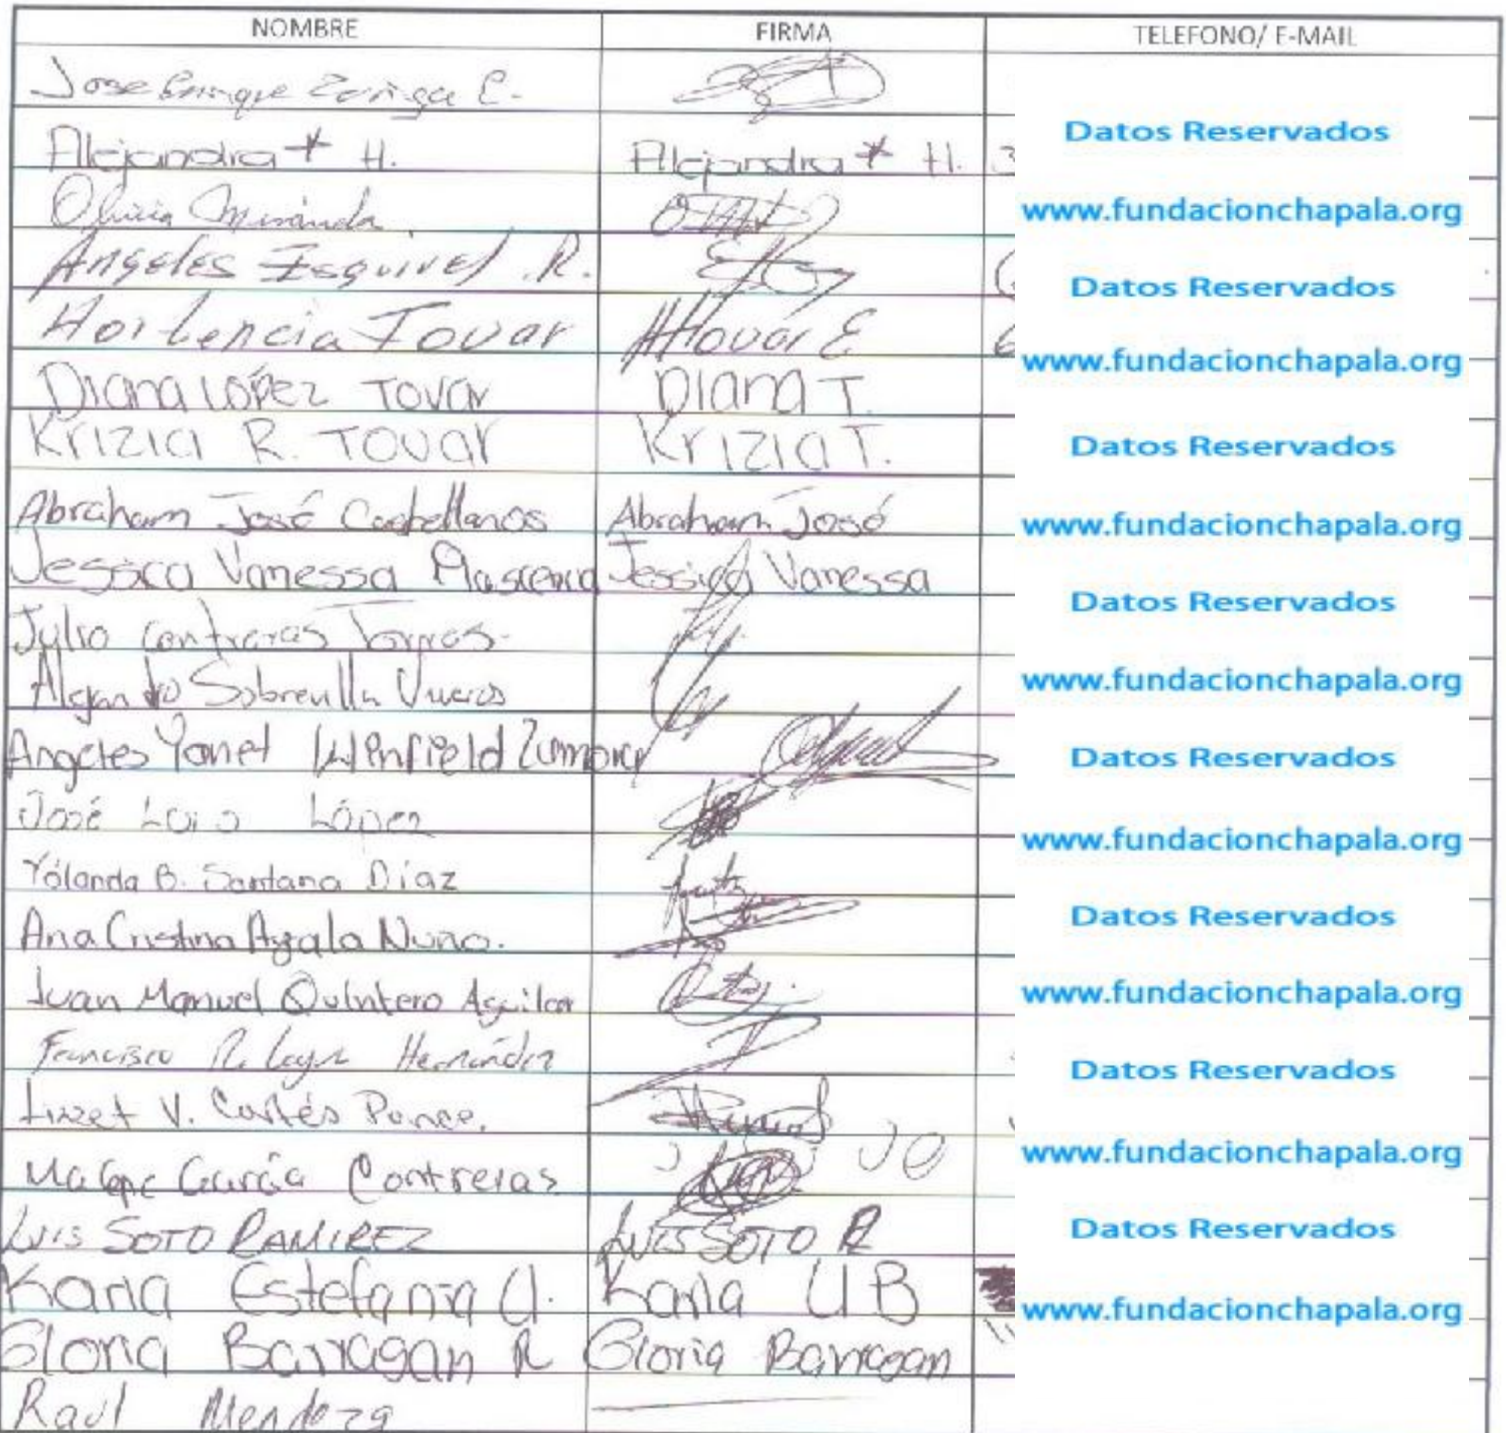 NOMBRE FIRMA TELEFONO/ E-MAIL
Jose Enrique Zuñiga E.
Datos Reservados
Alejandra * H. Alejandra * H. 3
Olivia Miranda www.fundacionchapala.org
Angeles Esquivel .R. Datos Reservados
Hortencia Tovar HTovar E
www.fundacionchapala.org
Diana López Tovar Diana T.
Krizia R. Tovar Krizia T. Datos Reservados
Abraham José Castellanos Abraham José www.fundacionchapala.org
Jessica Vanessa Jessica Vanessa
Datos Reservados
Julio Contreras Torres.
Alejandro Sobrevilla www.fundacionchapala.org
Angeles Yanet Winfield Zumora Datos Reservados
José Luis López www.fundacionchapala.org
Yolanda B. Santana Díaz
Ana Cristina Ayala Nuño. Datos Reservados
Juan Manuel Quintero Aguilar www.fundacionchapala.org
Francisco R. Hernández Datos Reservados
Lizet V. Cortés Ponce.
García Contreras www.fundacionchapala.org
Luis Soto Ramirez Luis Soto R Datos Reservados
Karla Estefania U. Karla U B www.fundacionchapala.org
Gloria Barragan R Gloria Barragan
Raul Mendoza